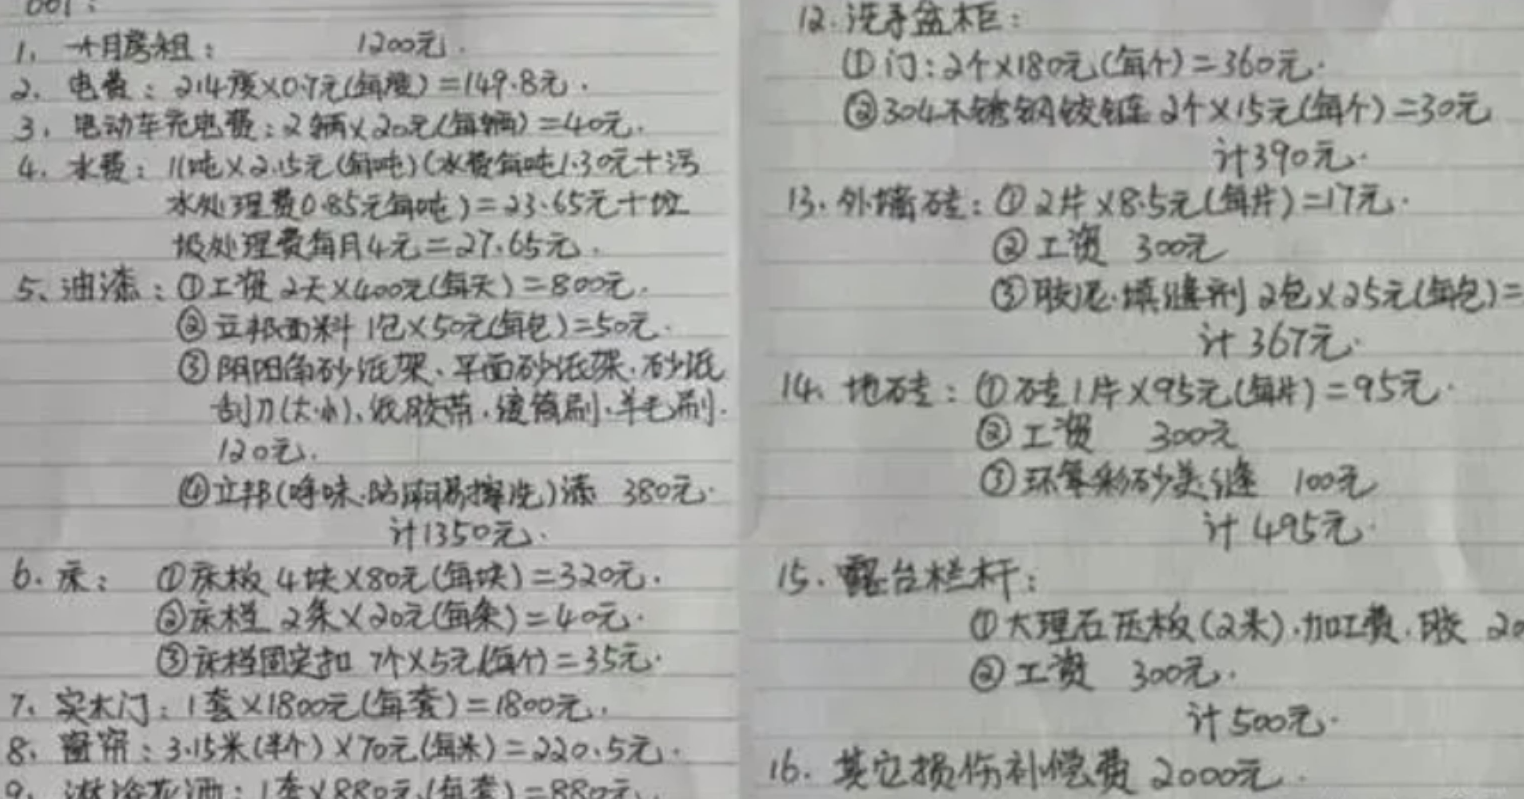 001:
1. 一个月房租: 1200元.
2. 电费: 214度×0.7元(每度)=149.8元.
3. 电动车充电费: 2辆×20元(每辆)=40元.
4. 水费: 11吨×2.15元(每吨)(水费每吨1.30元+污
水处理费0.85元每吨)=23.65元+垃
圾处理费每月4元=27.65元.
5、油漆: ①工资 2天×400元(每天)=800元.
②立邦面料 1包×50元(每包)=50元.
③阴阳角砂纸架、平面砂纸架、砂纸
刮刀(大.小)、纸胶带.滚筒刷.羊毛刷.
120元.
④立邦(净味.防.易擦洗)漆 380元.
计1350元.
6. 床: ①床板 4块×80元(每块)=320元.
②床档 2条×20元(每条)=40元.
③床档固定扣 7个×5元(每个)=35元.
7. 实木门: 1套×1800元(每套)=1800元.
8. 窗帘: 3.15米(半个)×70元(每米)=220.5元.
9. 淋浴花洒: 1套×880元(每套)=880元.
12. 洗手盆柜:
①门: 2个×180元(每个)=360元.
②304不锈钢铰链 2个×15元(每个)=30元
计390元.
13. 外墙砖: ①2片×8.5元(每片)=17元.
②工资 300元
③胶泥.填缝剂 2包×25元(每包)=
计367元.
14. 地砖: ①砖1片×95元(每片)=95元.
②工资 300元
③环氧彩砂美缝 100元
计495元.
15. 露台栏杆:
①大理石压板(2米).加工费.胶 20
②工资 300元.
计500元.
16. 其它损伤补偿费 2000元.